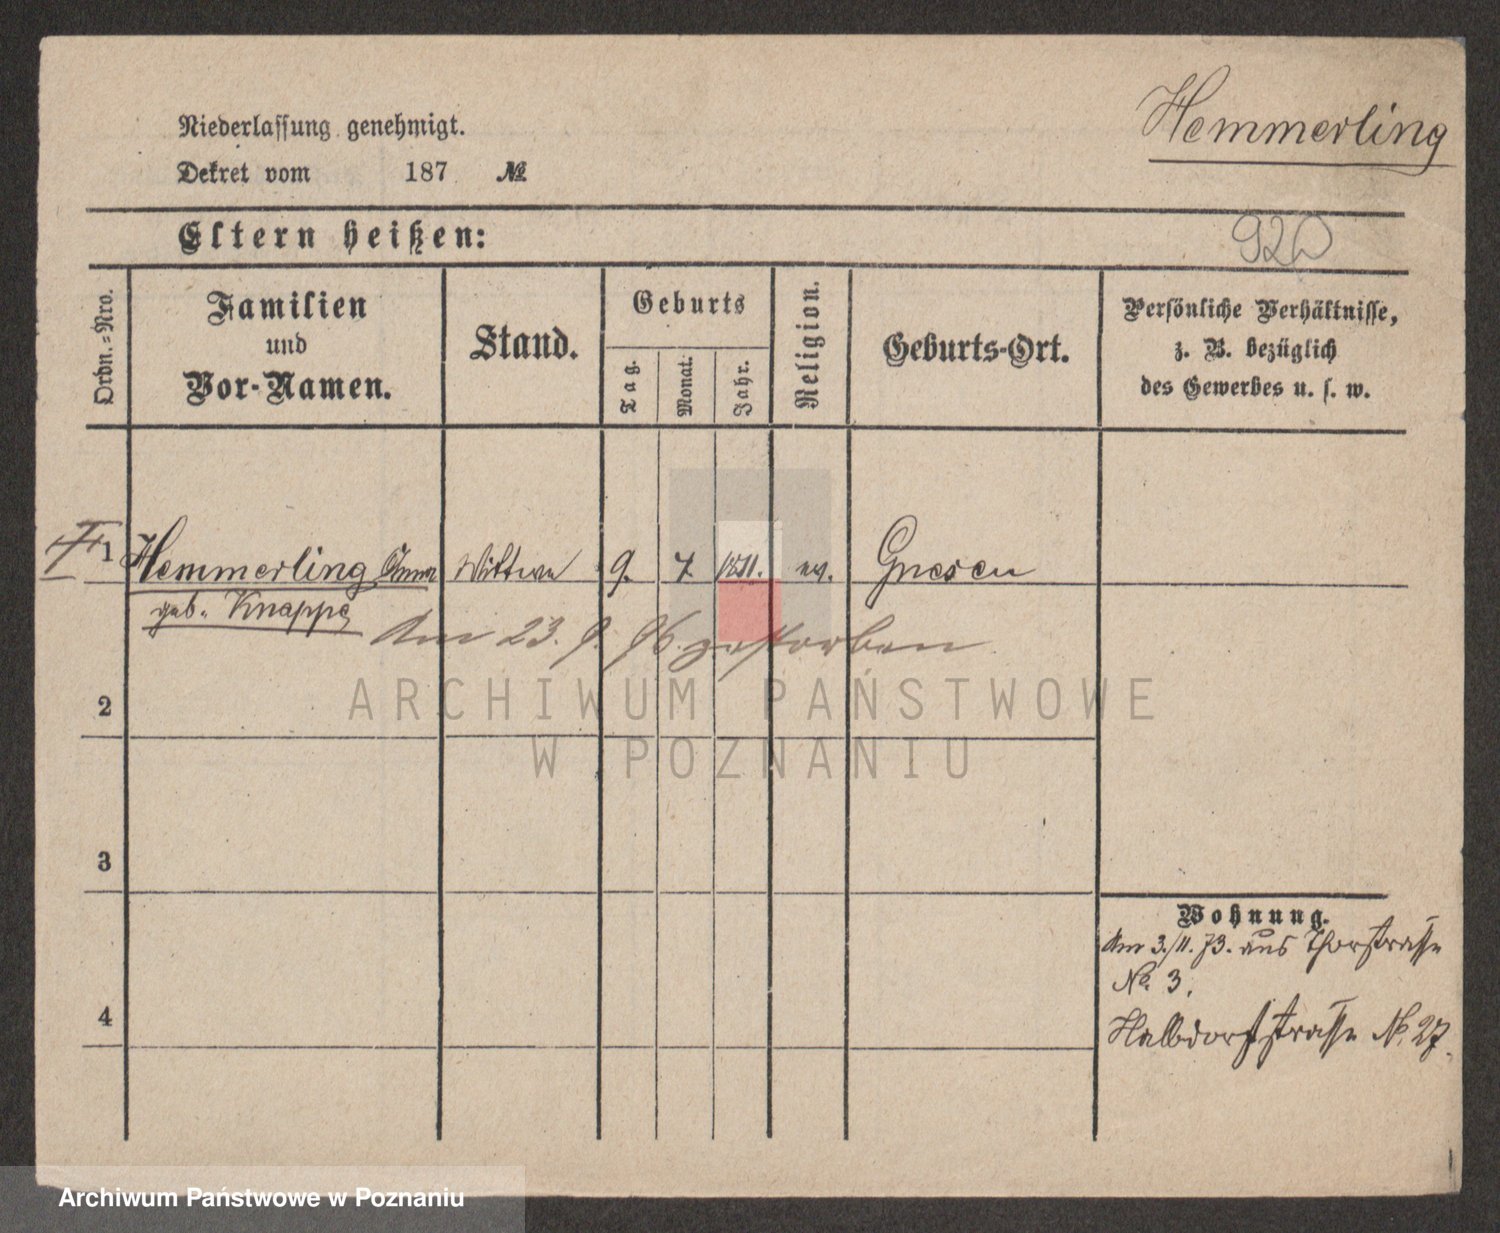 Hemmerling
Niederlassung genehmigt.
Dekret vom 187 №
920
Eltern heißen:
Ordn.-Nro.
Familien
und
Vor-Namen.
Stand.
Geburts
Tag.
Monat.
Jahr.
Religion.
Geburts-Ort.
Persönliche Verhältnisse,
z. B. bezüglich
des Gewerbes u. s. w.
1 Hemmerling Anna Wittwe 9. 7. 1811. ev. Gnesen
geb. Knappe
Am 23. 9. 96. gestorben
2
3
4
Wohnung.
Am 3./11. 73. aus Thorstrasse
No. 3.
Halbdorfstrasse No. 27.
ARCHIWUM PAŃSTWOWE
W POZNANIU
Archiwum Państwowe w Poznaniu